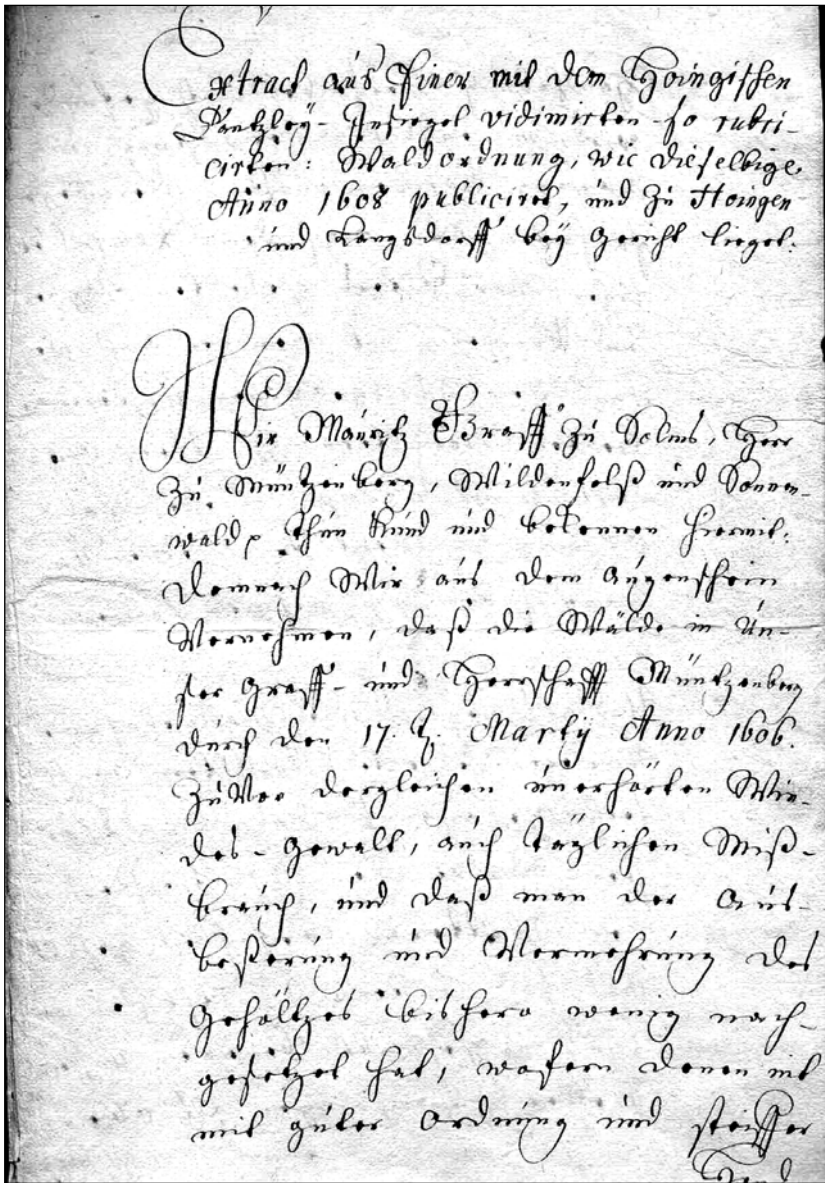 Extract aus Einer mit dem Hoingischen
Cantzley-Insiegel vidimirten so rubri-
cirten: Waldordnung, wie dieselbige
Anno 1608 publiciret, und zu Hoingen
und Langsdorff bey Gericht lieget:
Wir Mauritz Graff zu Solms, Herr
zu Müntzenberg, Wildenfelß und Sonnen-
wald, thun Kund und bekennen hiermit:
Demnach Wir aus dem Augenschein
Vernehmen, daß die Wälde in Un-
ser Graff- und Herrschafft Müntzenberg
durch den 17. Marty Anno 1606.
zuvor dergleichen unerhörten Win-
des-Gewalt, auch täglichen Miß-
brauch, und daß man der Aus-
beßerung und Vermehrung des
Gehöltzes bishero wenig nach-
gesetzet hat, wofern denen nit
mit guter Ordnung und steiffer
Hand